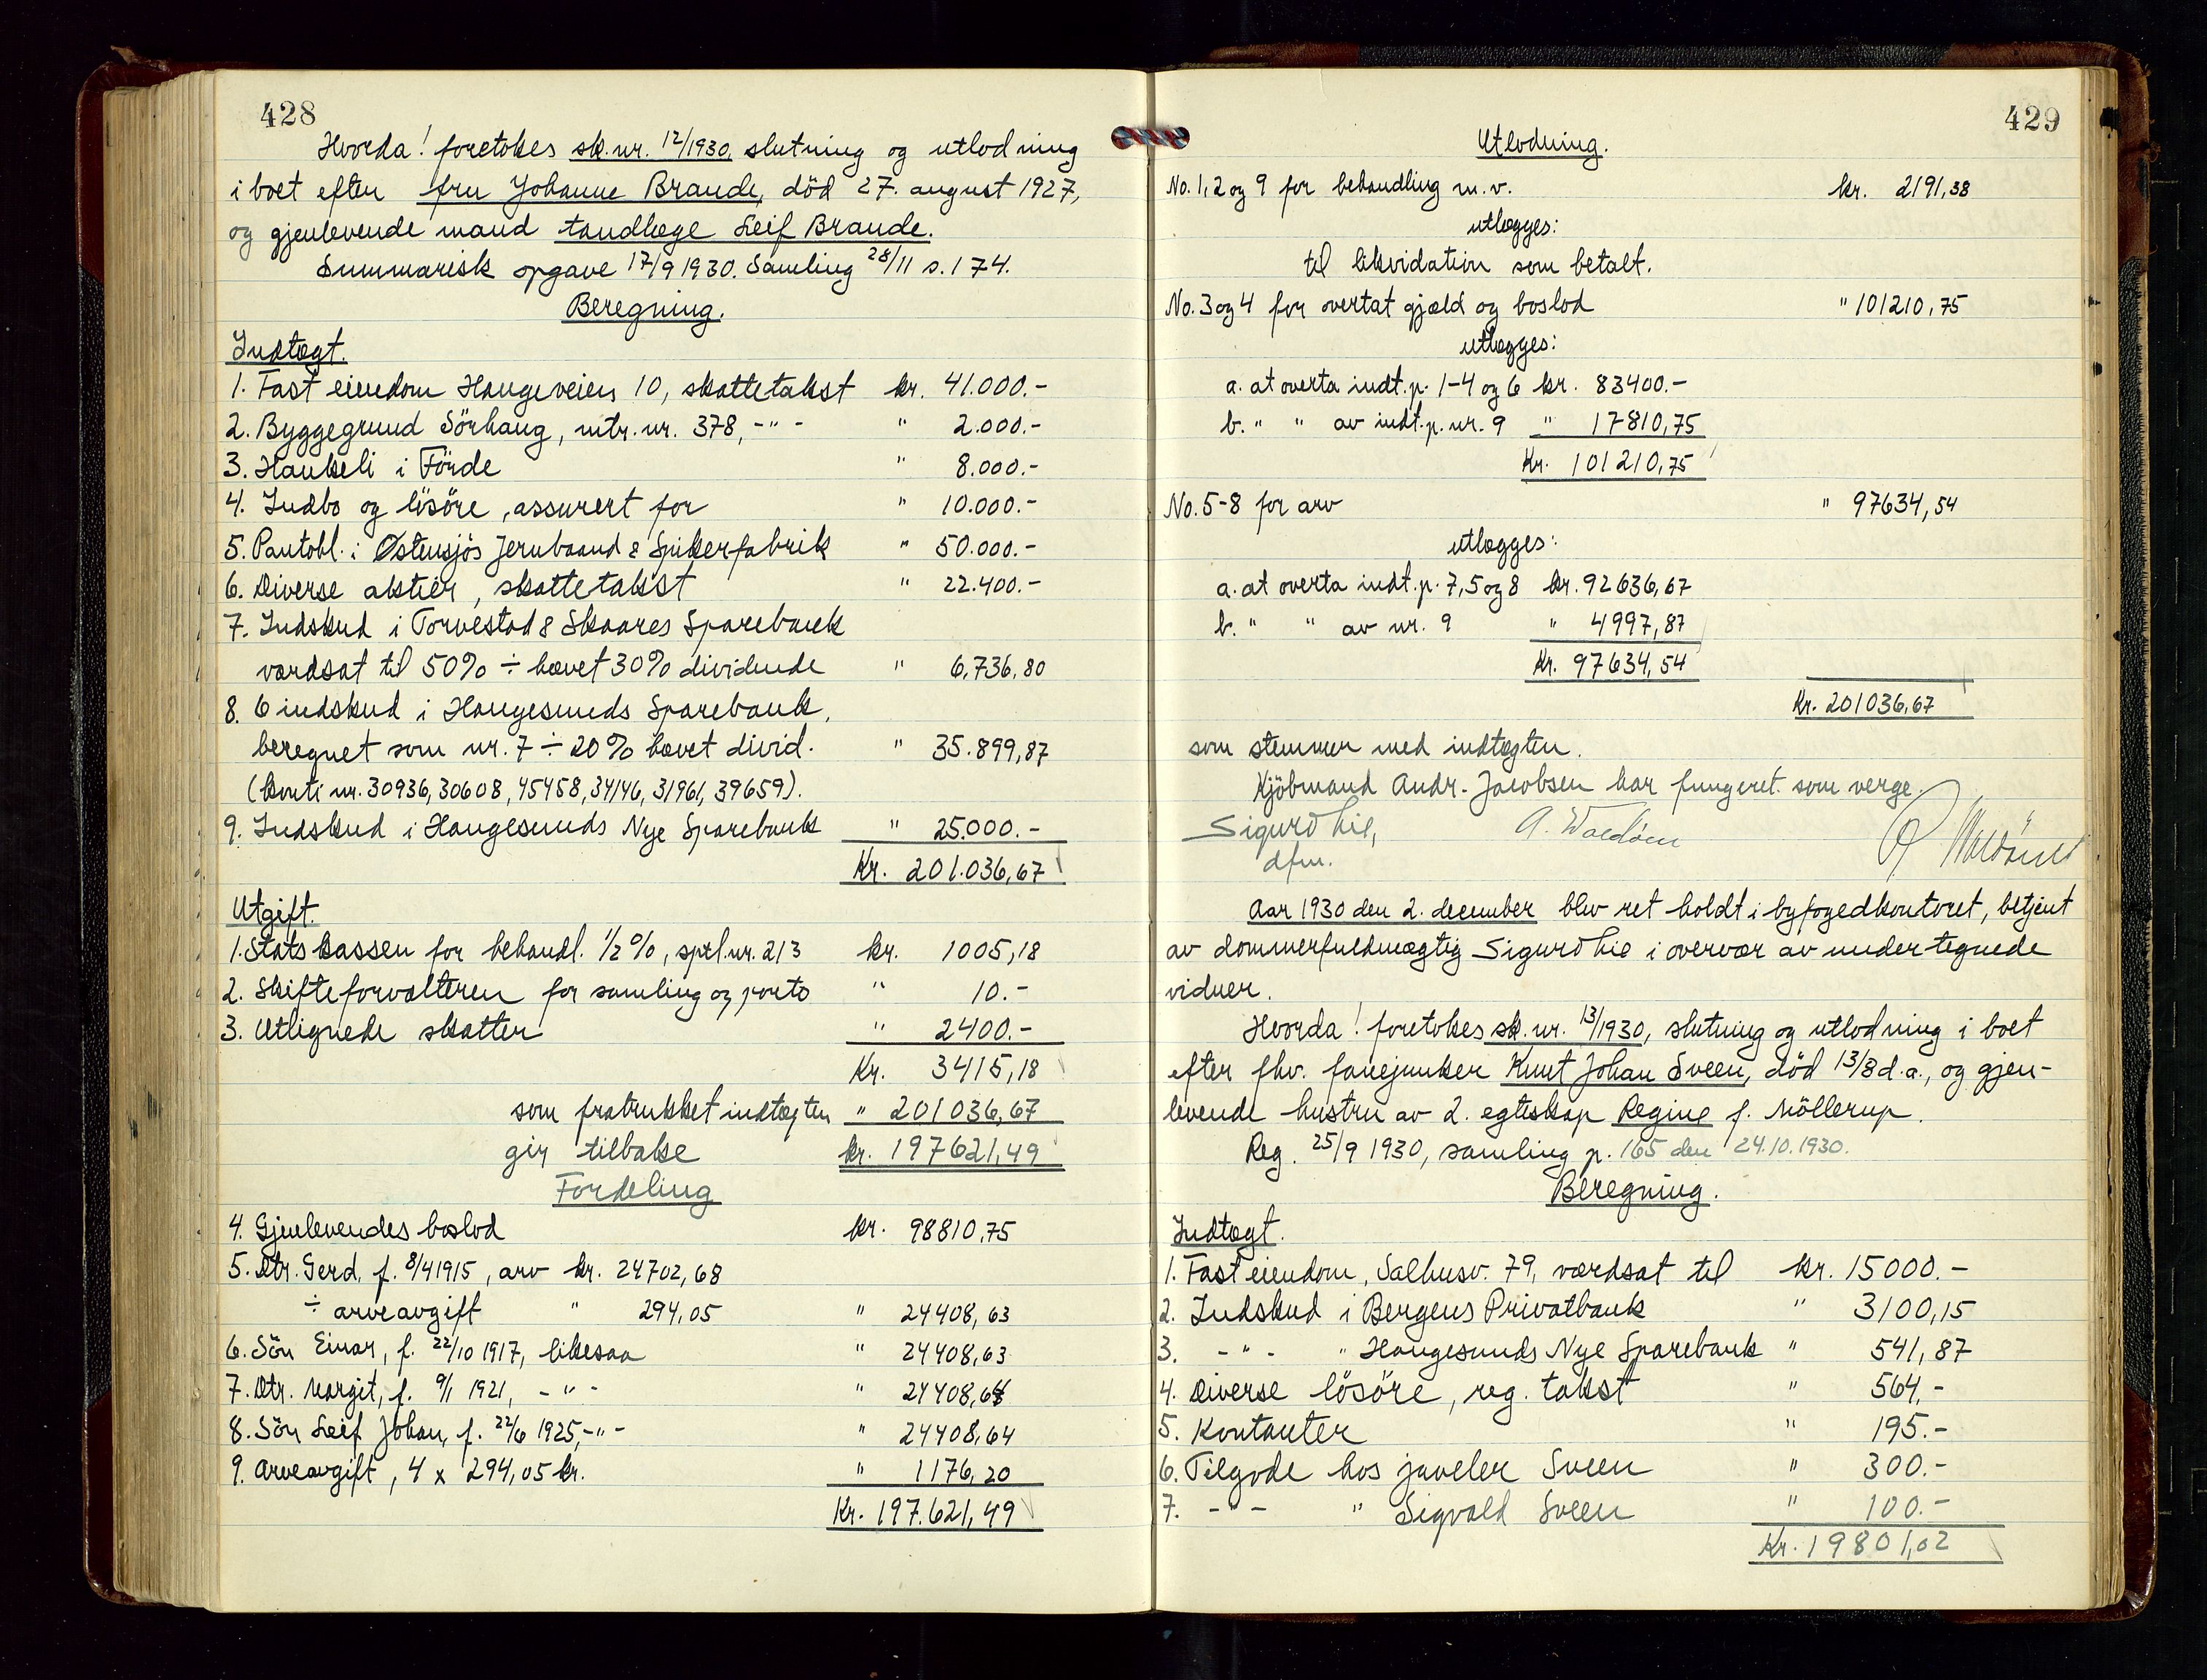 428
Hvorda! foretokes sk. nr. 12/1930, slutning og utlodning
i boet efter fru Johanne Brande, död 27. august 1927,
og gjenlevende mand tandlæge Leif Brande.
Summarisk opgave 17/9 1930. Samling 28/11 s. 174.
Beregning.
Indtægt.
1. Fast eiendom Haugeveien 10, skattetakst kr. 41.000.-
2. Byggegrund Sörhaug, mtr. nr. 378, -"- " 2.000.-
3. Haukeli i Förde " 8.000.-
4. Indbo og lösöre, assurert for " 10.000.-
5. Pantobl. i Østensjös Jernbaand & Spikerfabrik " 50.000.-
6. Diverse aktier, skattetakst " 22.400.-
7. Indskud i Torvestad & Skaares Sparebank
værdsat til 50% ÷ hævet 30% dividende " 6.736,80
8. 6 indskud i Haugesunds Sparebank,
beregnet som nr. 7 ÷ 20% hævet divid. " 35.899,87
(konti nr. 30936, 30608, 45458, 34146, 31961, 39659).
9. Indskud i Haugesunds Nye Sparebank " 25.000.-
Kr. 201.036,67
Utgift.
1. Statskassen for behandl. 1/2 %, sptl. nr. 213 kr. 1005,18
2. Skifteforvalteren for samling og porto " 10.-
3. Utlignede skatter " 2400.-
Kr. 3415,18
som fratrukket indtægten " 201036,67
gir tilbake kr. 197621,49
Fordeling
4. Gjenlevendes boslod kr. 98810,75
5. Dtr. Gerd, f. 8/4 1915, arv kr. 24702,68
÷ arveavgift " 294,05 " 24408,63
6. Sön Einar, f. 22/10 1917, likesaa " 24408,63
7. Dtr. Margit, f. 9/1 1921, -"- " 24408,64
8. Sön Leif Johan, f. 22/6 1925, -"- " 24408,64
9. Arveavgift, 4 x 294,05 kr. " 1176,20
Kr. 197.621,49
429
Utlodning.
No. 1, 2 og 9 for behandling m.v. kr. 2191,38
utlægges:
til likvidation som betalt.
No. 3 og 4 for overtat gjæld og boslod " 101210,75
utlægges:
a. at overta indt. p. 1-4 og 6 kr. 83400.-
b. " " av indt. p. nr. 9 " 17810,75
Kr. 101210,75
No. 5-8 for arv " 97634,54
utlægges:
a. at overta indt. p. 7, 5 og 8 kr. 92636,67
b. " " av nr. 9 " 4997,87
Kr. 97634,54
Kr. 201036,67
som stemmer med indtægten.
Kjöbmand Andr. Jacobsen har fungeret som verge.
Sigurd Lie,
dfm.
Aar 1930 den 2. december blev ret holdt i byfogedkontoret, betjent
av dommerfuldmægtig Sigurd Lie i overvær av undertegnede
vidner.
Hvorda! foretokes sk. nr. 13/1930, slutning og utlodning i boet
efter fhv. fanejunker Knut Johan Sveen, död 13/8 d.a., og gjen-
levende hustru av 2. egteskap Regine f. Möllerup.
Reg. 25/9 1930, samling p. 165 den 24.10.1930.
Beregning.
Indtægt.
1. Fast eiendom, Salhusv. 79, værdsat til kr. 15000.-
2. Indskud i Bergens Privatbank " 3100,15
3. -"- " Haugesunds Nye Sparebank " 541,87
4. Diverse lösöre, reg. takst " 564,-
5. Kontanter " 195.-
6. Tilgode hos juveler Sveen " 300.-
7. -"- " Sigvald Sveen " 100.-
Kr. 19801,02